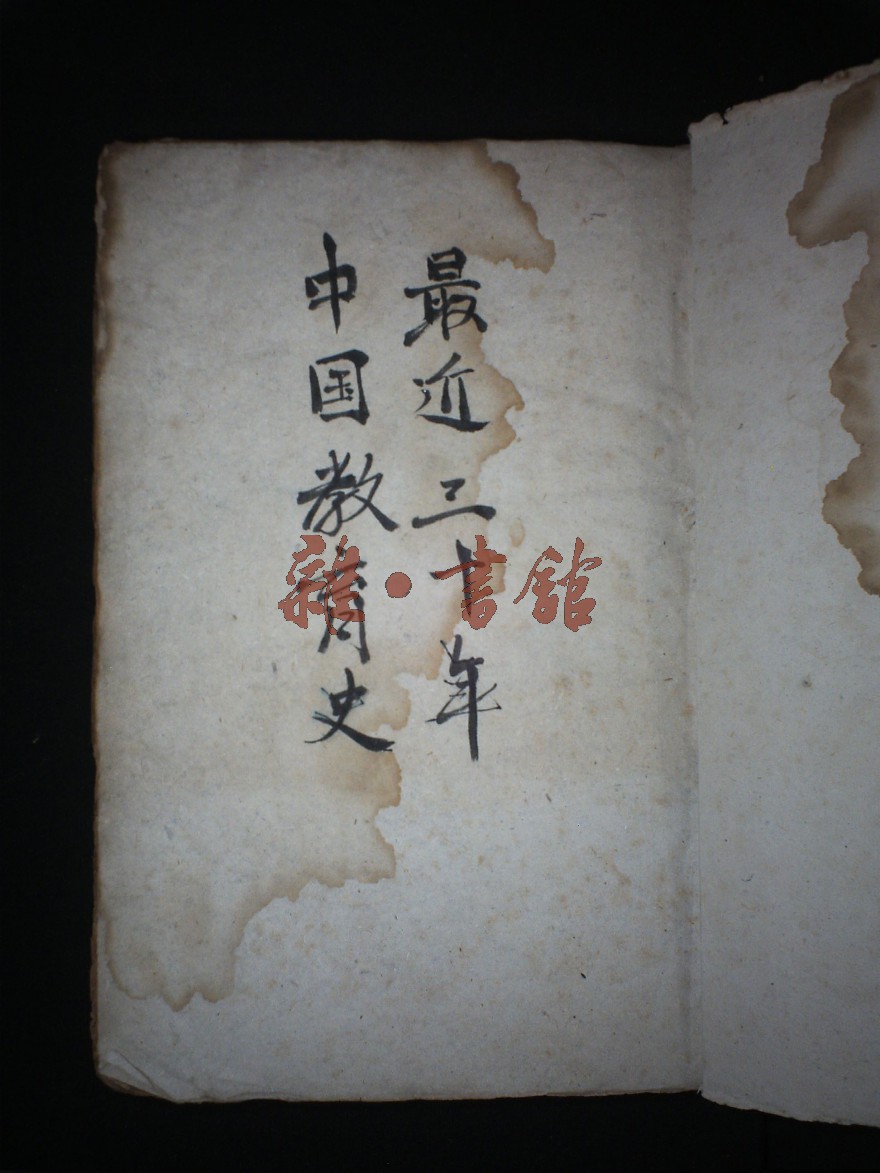 最近三十年
中国教育史
雜·書館